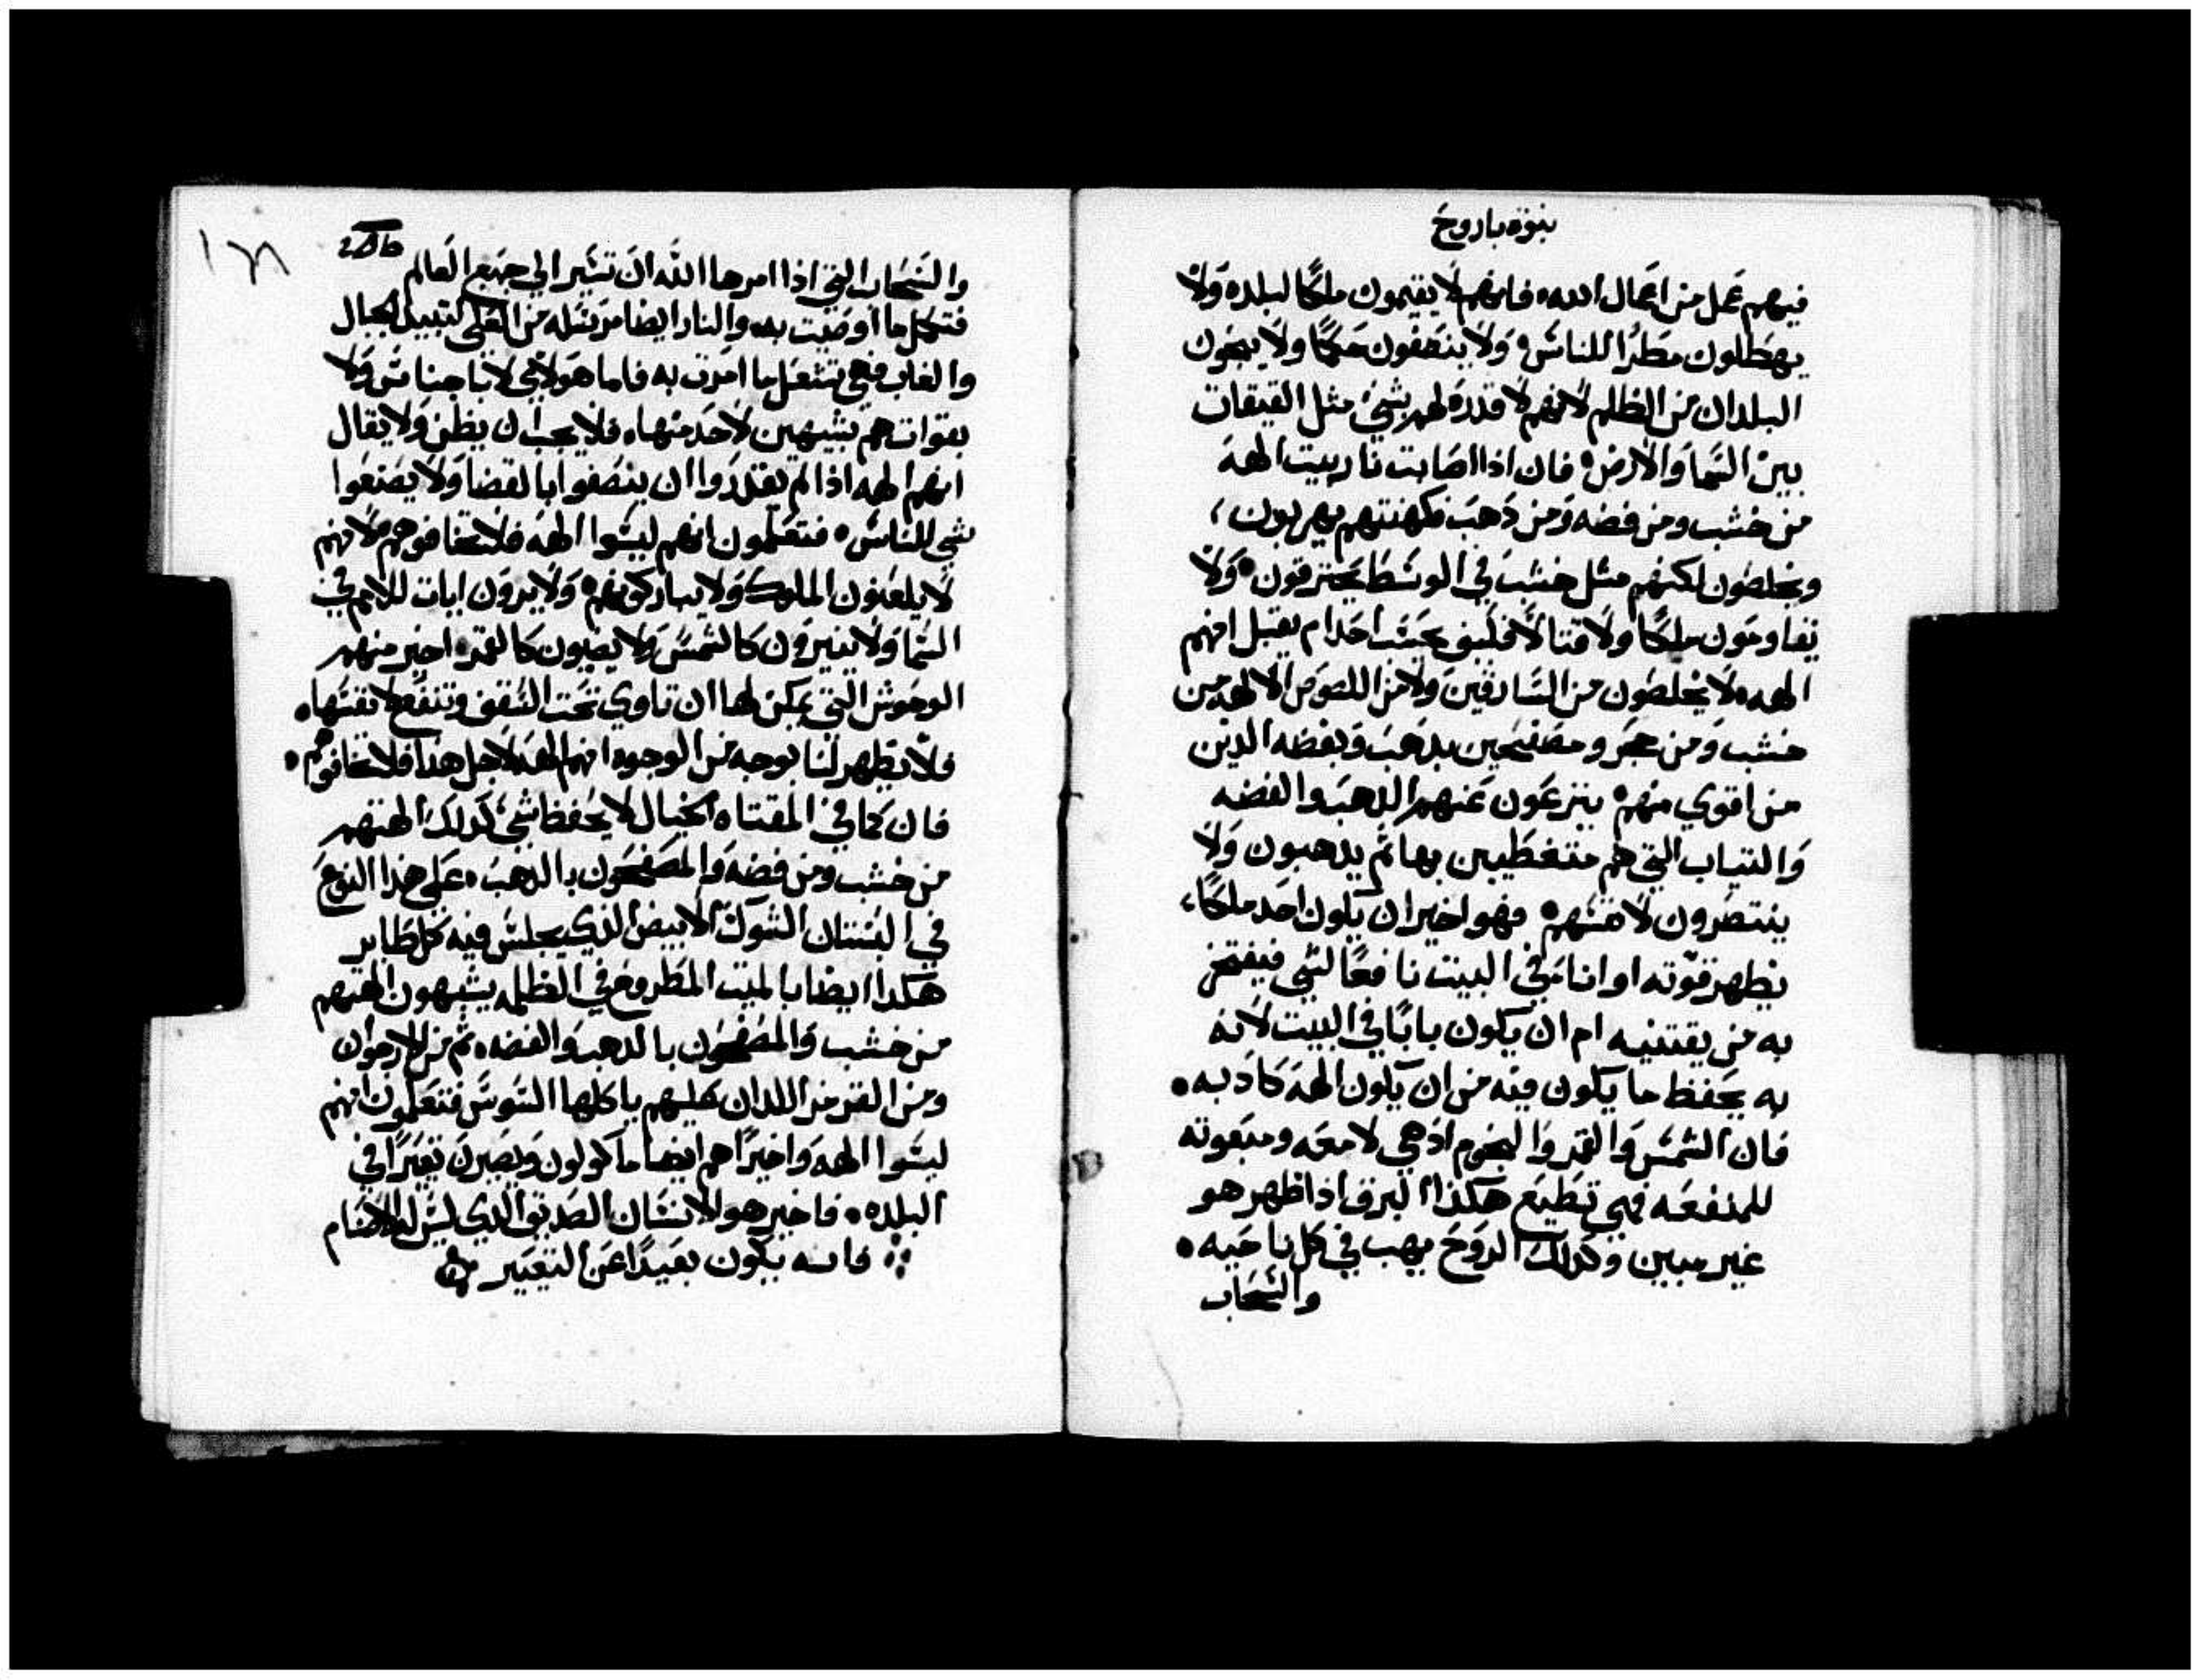 بنوة باروخ
فيهم عمل من اعمال الله، فانهم لا يقيمون ملكًا لبلده ولا
يهطلون مطرًا للناس، ولا ينصفون حكمًا ولا ينجون
البلدان من الظلم لانهم لا قدرة لهم بشي مثل القيقات
بين السما والارض، فان اذا اصابت نار بيت الهه
من خشب ومن فضه ومن ذهب فكهنتهم يهربون،
ويخلصون لكنهم مثل خشب في الوسط يحترقون، ولا
يقاومون ملكًا ولا قتالا فلين يحسب احدا م يقبل انهم
الهه، لا يخلصون من السارقين ولا من اللصوص الالهه من
خشب ومن حجر ومصفحين بدهب وبفضه الدين
من اقوي منهم، ينزعون عنهم الدهب والفضه
والتياب التي هم متغطيين بها تم يدهبون ولا
ينتصرون لانفسهم، فهو اخير ان يكون احد ملكًا،
يظهر قوته او انا في البيت نافعًا لشي فيفتخر
به من يقتنيه ام ان يكون بابًا في البيت لانه
به يحفظ ما يكون فيه من ان يكون الهه كادبه،
فان الشمس والقمر والنجوم اد هي لامعه ومبعوته
للمنفعه فهي تطيع هكذا البرق اذا ظهر هو
غير مبين وكدلك الروح يهب في كل ناحيه،
والسحاب
١٣٨
والسحاب التي اذا امرها الله ان تسير الي جميع العالم
فتكمل ما اوصيت به، والنار ايضا مرسله من العلى لتبيد الجبال
والغاب فهي تفعل ما امرت به فاما هولاي لا باجناس ولا
بقوات هم يشبهين لاحد منها، فلا يجب ان يظن ولا يقال
انهم الهه اذا لم يقدروا ان ينصفوا بالقضا ولا يصنعوا
شي للناس، فتعلمون انهم ليسوا الهه فلا تخافوهم لانهم
لا يلعنون الملوك ولا يباركونهم، ولا يرون ايات للامم في
السما ولا ينيرون كالشمس ولا يضيون كالقمر، اخير منهم
الوحوش التي يمكن لها ان تاوي تحت السقف وتنفع لانفسها،
فلا يظهر لنا بوجه من الوجوه انهم الهه لاجل هدا فلا تخافوهم،
فان كما في المقتاه الخيال لا يحفظ شي كدلك الهتهم
من خشب ومن فضه والمصفحون بالدهب، على هذا النوع
في البستان الشوك الابيض الدي يجلس فيه كل طاير
هكدا ايضا بالميت المطروح في الظلمه يشبهون الهتهم
من خشب والمصفحون بالدهب والفضه، ثم من الارجوان
ومن القرمز اللدان عليهم ياكلها السوس فتعلمون انهم
ليسوا الهه واخيرًا هم ايضا ماكولون ويصيرن تعيرًا في
البلده، فاخير هو الانسان الصديق الدي ليس له الاصنام
فانه يكون بعيدًا عن التعيير